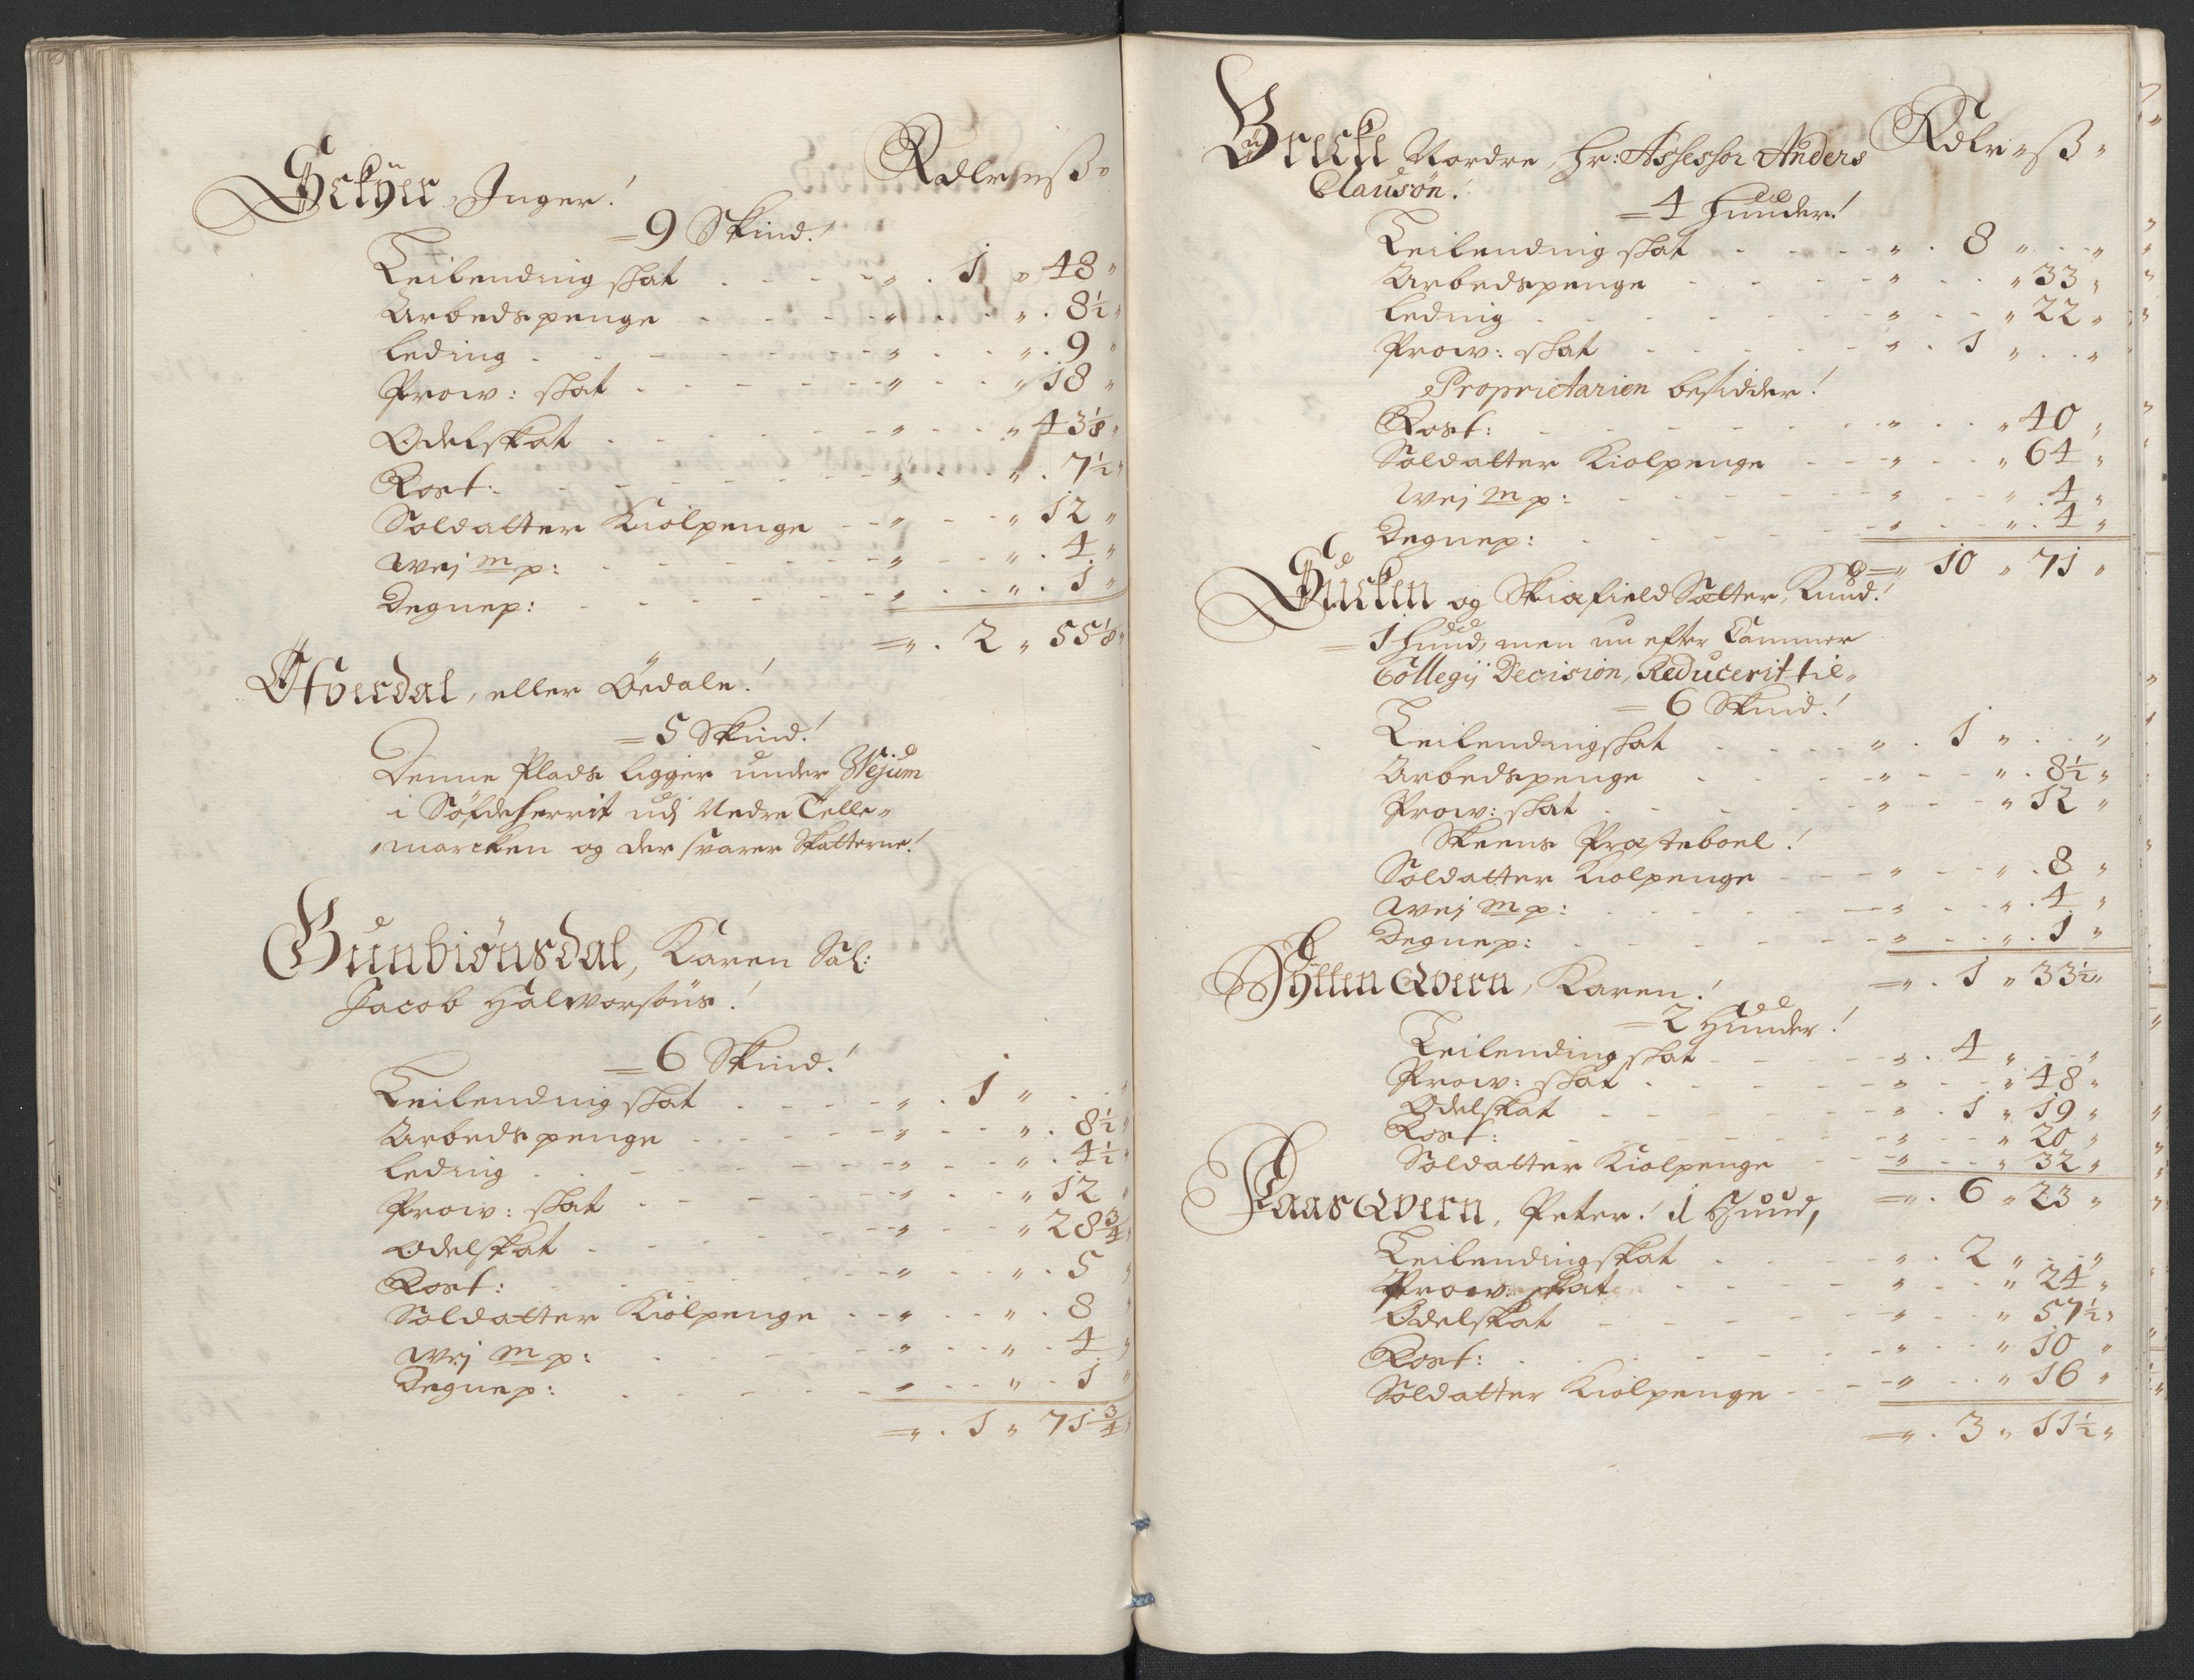 Rdlr „ ß „
Eckÿer, Inger!
= 9 Skind!
Leilending skat „ 1 „ 48 „
Arbedspenge „ „ 8½ „
Leding „ „ 9 „
Prow: skat „ „ 18 „
Odelskat „ „ 43⅛ „
Rost: „ „ 7½ „
Soldatter Kiolpenge „ „ 12 „
Wej m p: „ „ 4 „
Degnep: „ „ 1 „
= „ 2 „ 55⅛ „
Ofverdal, eller Öedale!
= 5 Skind!
Denne Plads ligger under Wejum
i Söfdeherrit udj Nedre Telle„
„marcken og der svarer Skatterne!
Gunbiönsdal, Karen Sal:
Jacob Halvorsöns!
= 6 Skind!
Leilending skat „ 1 „ „
Arbedspenge „ „ 8½ „
Leding „ „ 4½ „
Prow: skat „ „ 12 „
Odelskat „ „ 28¾ „
Rost: „ „ 5 „
Soldatter Kiolpenge „ „ 8 „
Wej m p: „ „ 4 „
Degnep: „ „ 1 „
= „ 1 „ 71¾ „
Rdlr „ ß „
Brecke Nordre, Hr: Assessor Anders
Clausön!
= 4 Huuder!
Leilending skat „ 8 „ „
Arbedspenge „ „ 33 „
Leding „ „ 22 „
Prow: skat „ 1 „ „
Proprietarien besidder!
Rost: „ „ 40 „
Soldatter Kiolpenge „ „ 64 „
Wej m p: „ „ 4 „
Degnep: „ „ 4 „
= „ 10 „ 71 „
og Skiafield Sætter, Knud!
= 1 Huud, men nu efter Cammer
Collegij Decision, Reducerit til„
= 6 Skind!
Leilendingskat „ 1 „ „
Arbedspenge „ „ 8½ „
Prow: skat „ „ 12 „
Skeens Præsteboel!
Soldatter Kiolpenge „ „ 8 „
Wej m p: „ „ 4 „
Degnep: „ „ 1 „
= „ 1 „ 33½ „
Hÿtten Qvern, Karen!
= 2 Huuder!
Leilending skat „ 4 „ „
Prow: skat „ „ 48 „
Odelskat „ 1 „ 19 „
Rost: „ „ 20 „
Soldatter Kiolpenge „ „ 32 „
= „ 6 „ 23 „
Faas Qvern, Peter! 1 Huud,
Leilendingskat „ 2 „ „
Prow: skat „ „ 24 „
Odelskat „ „ 57½ „
Rost: „ „ 10 „
Soldatter Kiolpenge „ „ 16 „
= „ 3 „ 11½ „